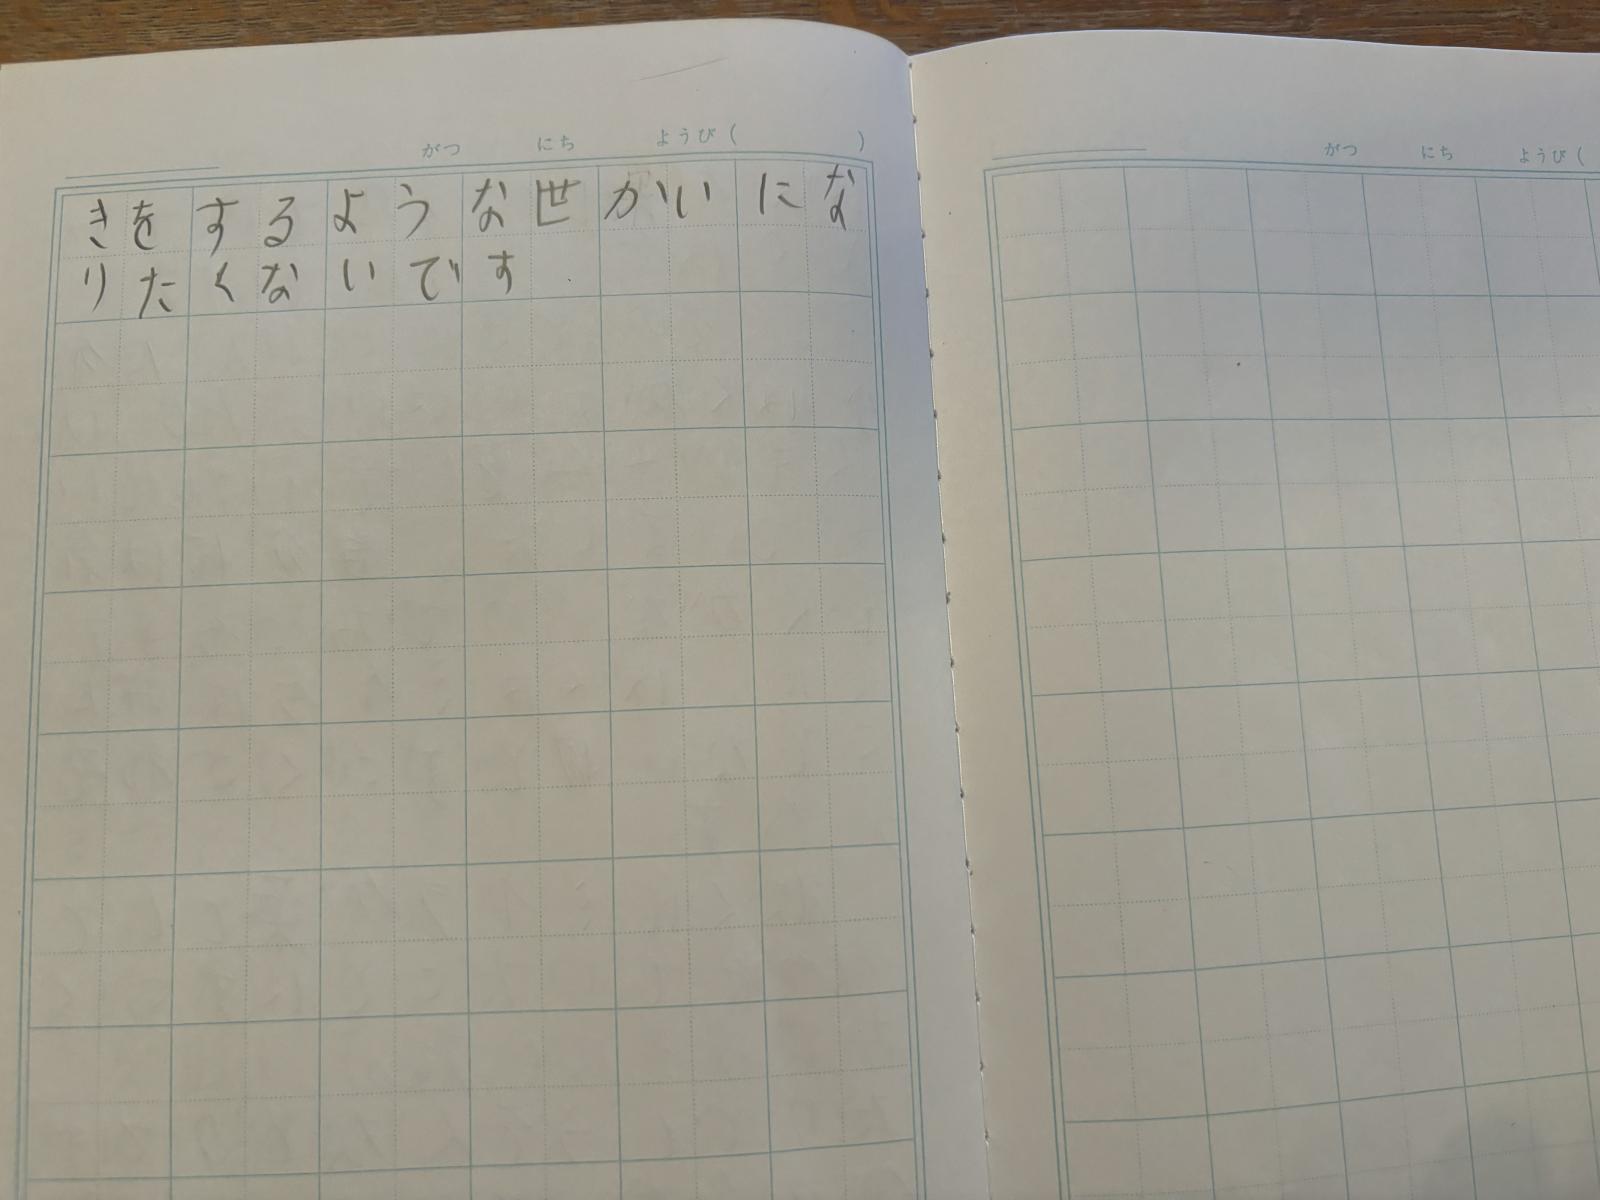 がつ にち ようび( )
きをするような世かいにな
りたくないです
がつ にち ようび(